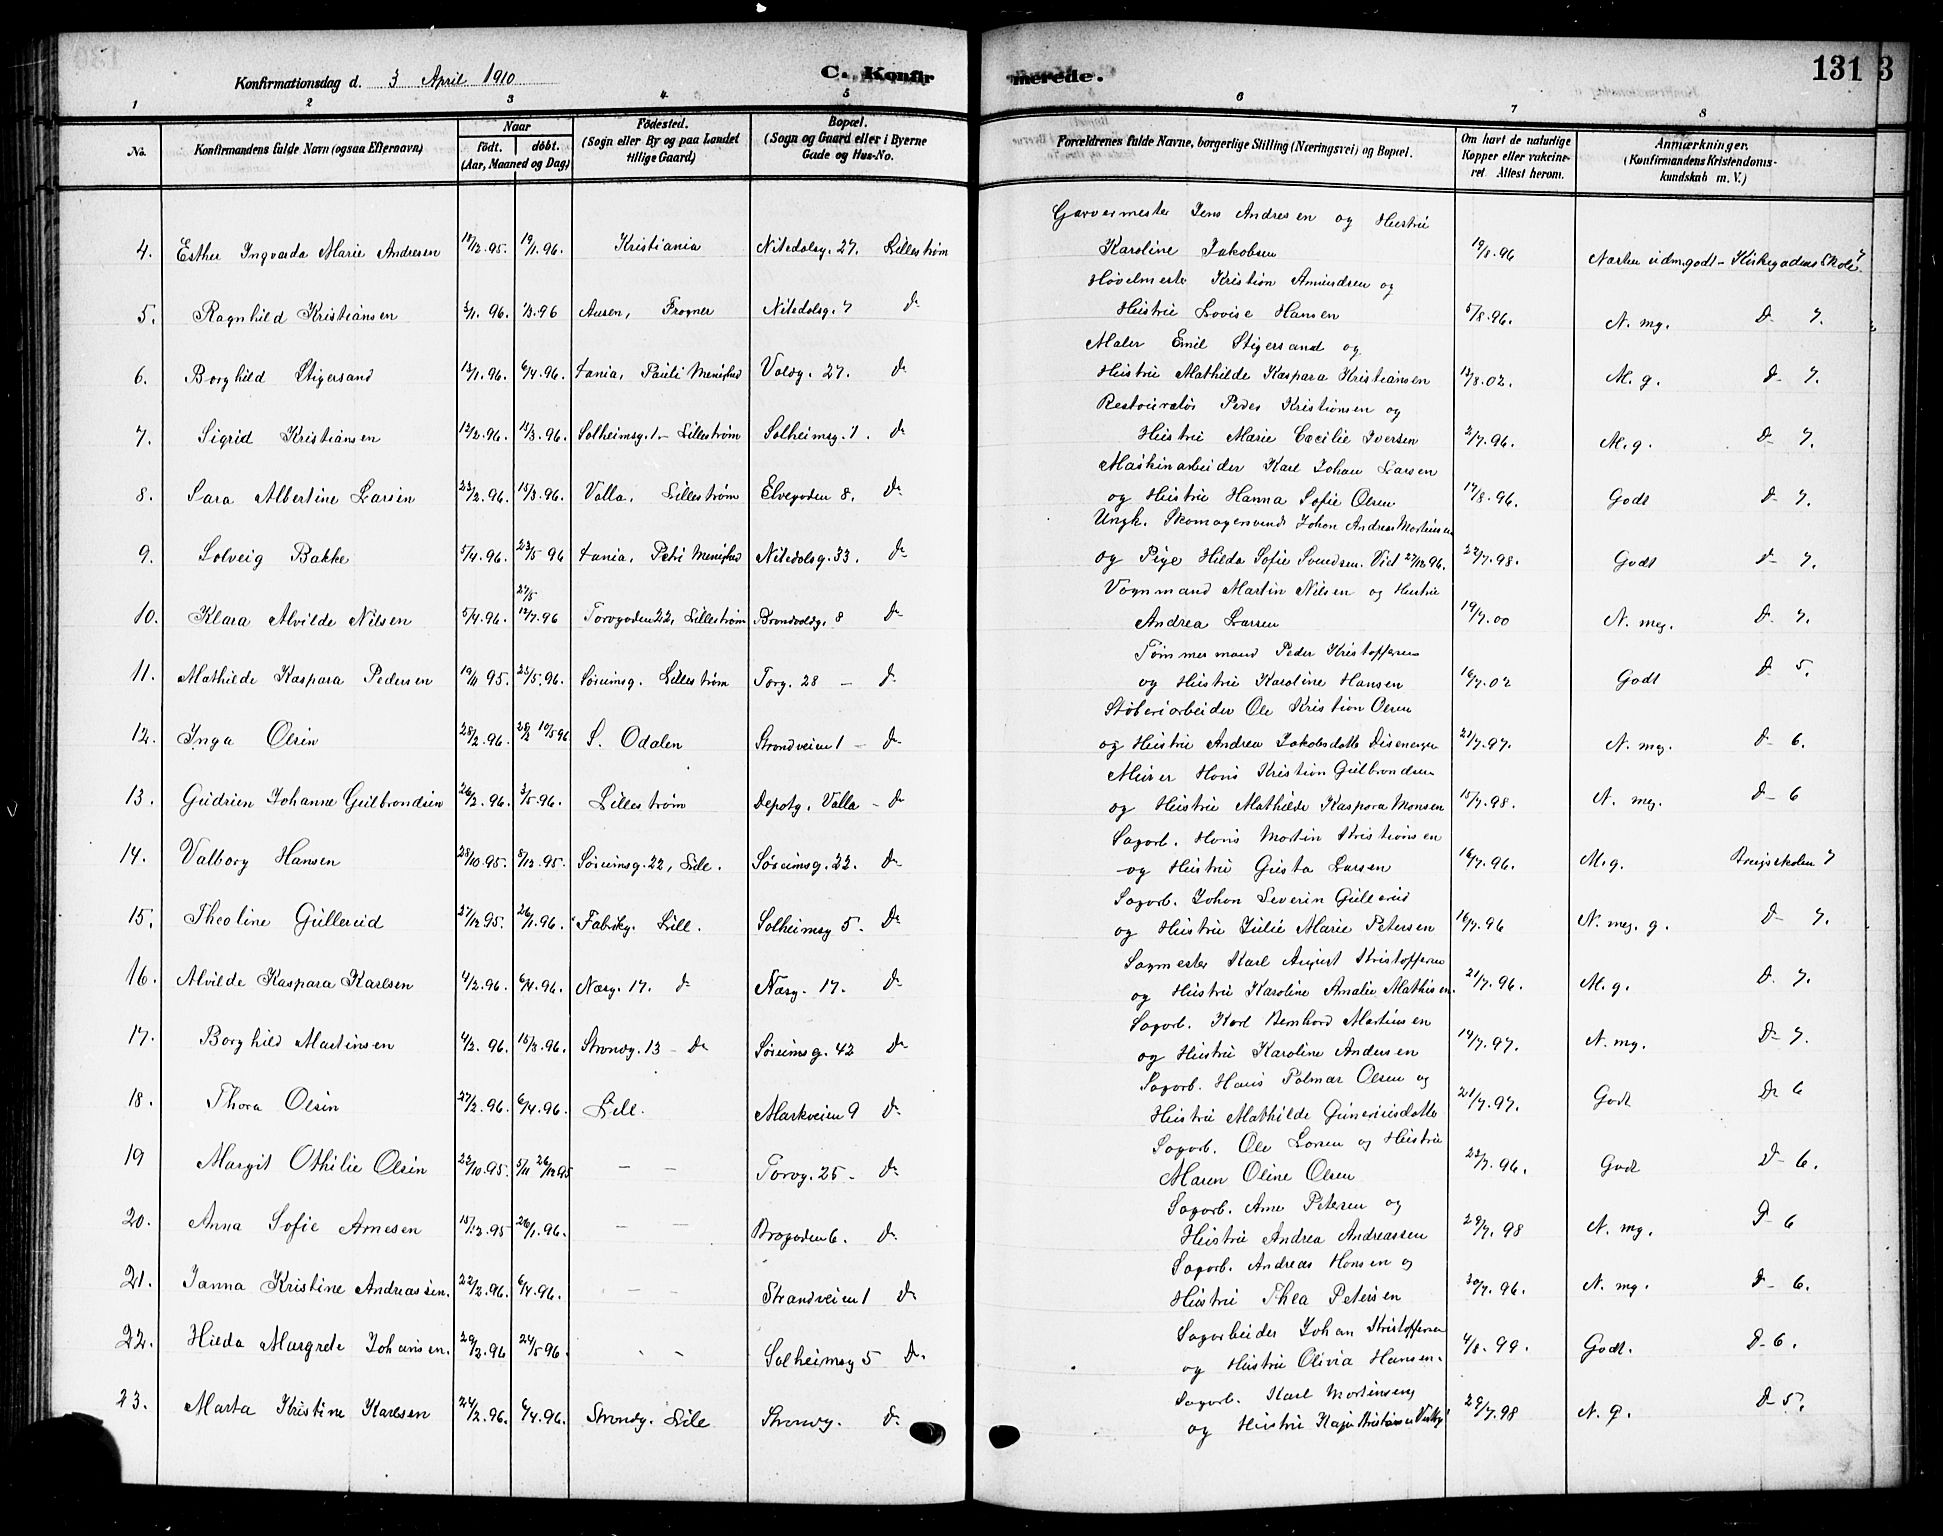 Konfirmationsdag d. 3 April 1910
C. Konfirmerede.
131
3
1 2 3 4 5 6 7 8
No. Konfirmandens fulde Navn (ogsaa Efternavn) Naar födt. döbt. (Aar, Maaned og Dag) Födested. (Sogn eller By og paa Landet tillige Gaard) Bopæl. (Sogn og Gaard eller i Byerne Gade og Hus-No. Forældrenes fulde Navne, borgerlige Stilling (Næringsvei) og Bopæl. Om havt de naturlige Kopper eller vakcineret Attest herom. Anmærkninger. (Konfirmandens Kristendomskundskab m. V.)
Garvermester Jens Andresen og Hustru
4. Esther Ingvarda Marie Andresen 95. 19/1.96. Kristiania Nitedalsg. 27. Lillestrøm Karoline Jakobsen 19/8.96 Næsten udm.godt - Kirkegadens Skole 7
Høvelmester Kristian Amundsen og
5. Ragnhild Kristiansen 3/1.96. 1/3.96 Ausen, Frogner Nitedalsg. 7 do Hustru Lovise Hansen 5/8.96. N. mg. D- 7.
Maler Emil Stigersand og
6. Borghild Stigersand 13/1.96. 6/4.96. tania, Pauli Menighed Voldg. 27. do Hustru Mathilde Kaspara Kristiansen 13/8.02. M. g. D- 7.
Restauratør Peder Kristiansen og
7. Sigrid Kristiansen 12/2.96. 15/3.96. Solheimsg. 1. - Lillestrøm Solheimsg. 1. do Hustru Marie Cecilie Iversen 2/7.96. M. g. D- 7.
Maskinarbeider Karl Johan Larsen
8. Sara Albertine Larsen 23/2.96. 15/3.96. Valla, Lillestrøm Elvegaden 8. do og Hustru Hanna Sofie Olsen 17/8.96. Godt D- 7.
Ungk. Skomagersvend Johan Andreas Mortensen
9. Solveig Bakke 5/4.96. 23/5 96 tania, Petri Menighed Nitedalsg. 33. do og Pige Hilda Sofie Svendsen. Viet 27/12 96. 22/7.98. Godt D- 7.
27/5
Vognmand Martin Nilsen og Hustru
10. Klara Alvilde Nilsen 5/4.96. 12/7.96 Torvgaden 22, Lillestrøm Brandvoldg. 8 do Andrea Larsen 19/7.00 N. meg. D- 7.
Tømmermand Peder Kristoffersen
11. Mathilde Kaspara Pedersen 19/11 95. 25/5.96. Søreimsg. Lillestrøm Torg. 28 - do og Hustru Karoline Hansen 16/7.02 Godt D- 5.
Støberiarbeider Ole Kristian Olsen
12. Inga Olsen 28/2.96. 28/2 10/5 96 S. Odalen Strandveien 1 - do og Hustru Andrea Jakobsdatter Disenengen 21/7.97. N. mg. D- 6.
Murer Hans Kristian Gulbrandsen
13. Gudrun Johanne Gulbrandsen 26/2.96. 3/5.96. Lillestrøm Depotg. Valla - do og Hustru Mathilde Kaspara Monsen 15/7.98. N. meg. D- 6
Sagarb. Hans Martin Kristiansen
14. Valborg Hansen 28/10.95. 8/12.95. Søreimsg. 22, Lille. Søreimsg. 22. do og Hustru Gusta Larsen 16/7.96. M. g. 7
Sagarb. Johan Severin Gullerud
15. Theoline Gullerud 27/12 95. 26/1.96. Fabrikg. Lill. Solheimsg 5. do og Hustru Julie Marie Petersen 16/7.96 N. meg. g. D- 7.
Sagmester Karl August Kristoffersen
16. Alvilde Kaspara Karlsen 4/2.96. 6/4.96. Næsg. 17. do Næsg. 17. do og Hustru Karoline Amalie Mathisen. 21/7.96. M. g. D. 7.
Sagarb. Karl Bernhard Martinsen
17. Borghild Martinsen 4/2.96. 15/3.96. Strandg. 13 - do Søreimsg. 42 do og Hustru Karoline Andersen 14/7.97. N. mg. D- 7.
Sagarb. Hans Palmar Olsen og
18. Thora Olsen 27/2.96. 6/4.96. Lill. Markveien 9 do Hustru Mathilde Guneriusdatter 21/7.97. Godt D- 6
Sagarb. Ole Larsen og Hustru
19 Margit Othilie Olsen 22/10.95. 3/11 26/12 95 - - Torvg. 25 - do Maren Oline Olsen 22/7.96. Godt D- 6.
Sagarb. Arne Petersen og
20. Anna Sofie Arnesen 15/12.95 26/1.96. - - Bragaden 6. do Hustru Andrea Andreassen 29/7.98 N. mg. D- 6
Sagarb. Andreas Hansen og
21. Janna Kristine Andreassen. 22/2.96. 6/4.96. - - Strandveien 1 do Hustru Thea Petersen 30/7.96. N. mg. D- 6.
Sagarbeider Johan Kristoffersen
22. Hilda Margrete Johansen. 29/2.96 24/5 96. - - Solheimsg 5 do og Hustru Olivia Hansen. 4/8.99. Godt. D- 6.
Sagarb. Karl Mortensen
23. Marta Kristine Karlsen 24/2.96. 6/4.96. Strandg. Lille Strandg. do og Hustru Kaja Kristiansen 29/7.98 N. g. D- 5.